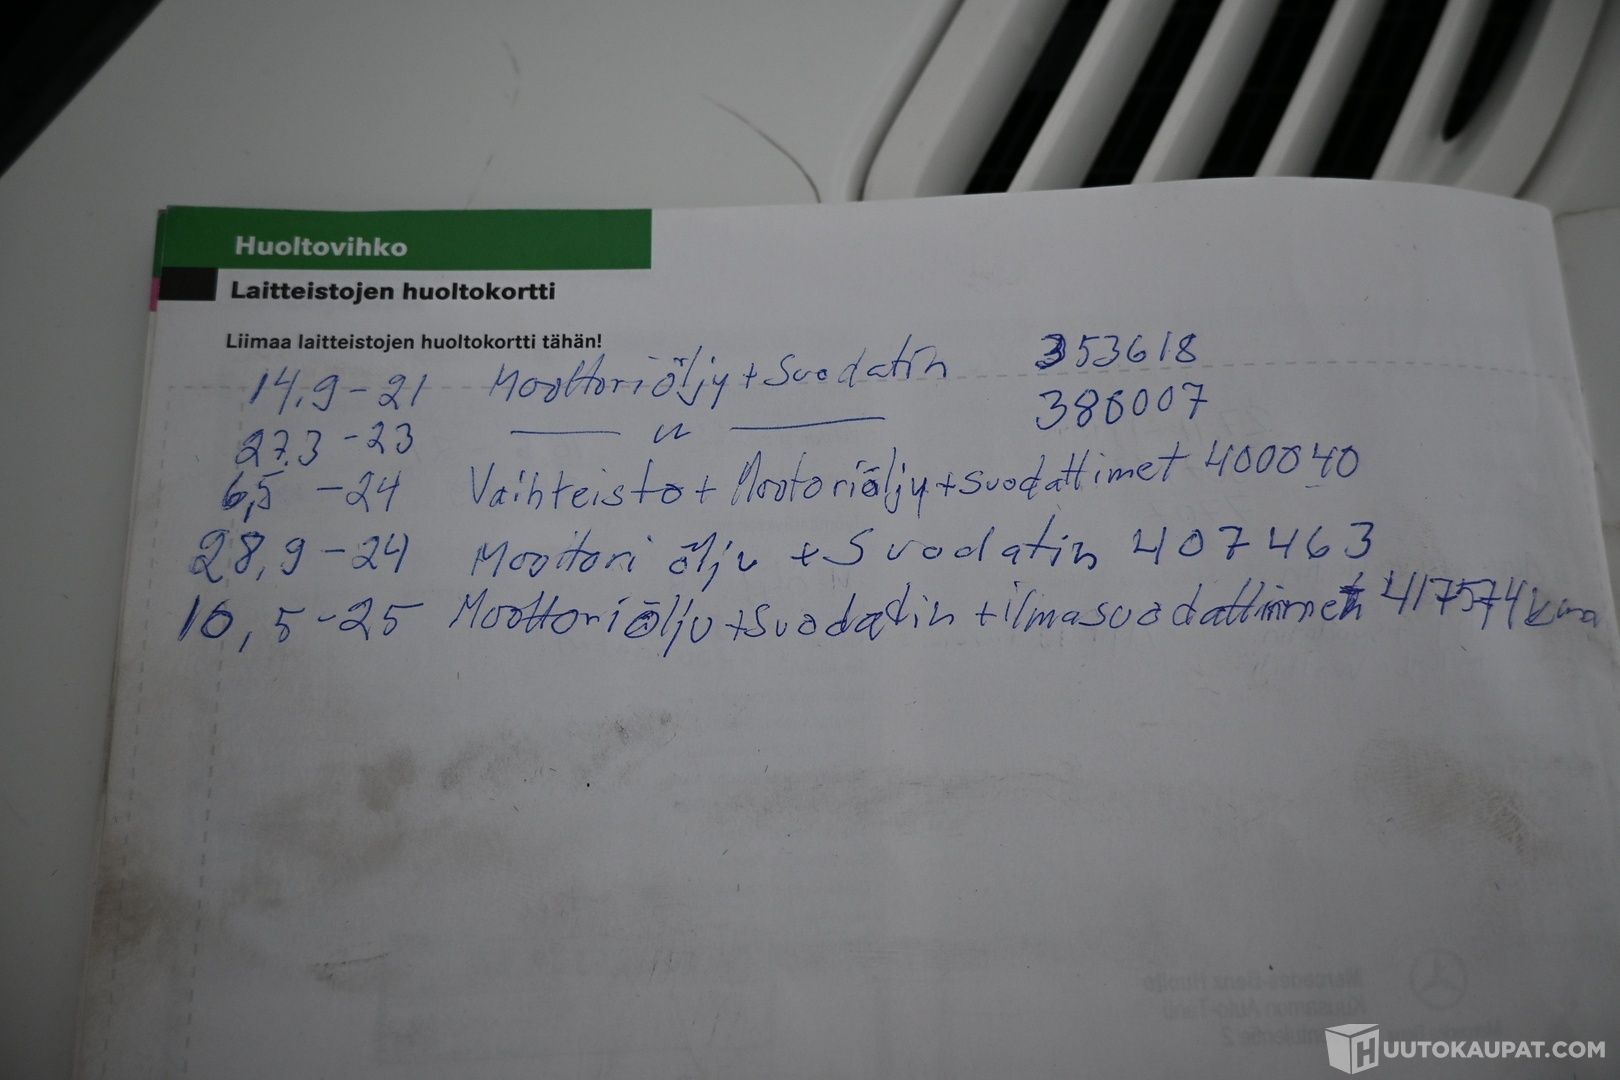 Huoltovihko
Laitteistojen huoltokortti
Liimaa laitteistojen huoltokortti tähän!
14.9-21 Moottoriöljy+Suodatin 353618
27.3-23 —— " —— 386007
6,5-24 Vaihteisto+Mootoriöljy+suodattimet 400040
28,9-24 Moottori öljy+Suodatin 407463
10,5-25 Moottoriöljy+Suodatin+ilmasuodattimmet 417574km
Mercedes-Benz Huolto
Kuusamon Auto-Tanti
HUUTOKAUPAT.COM